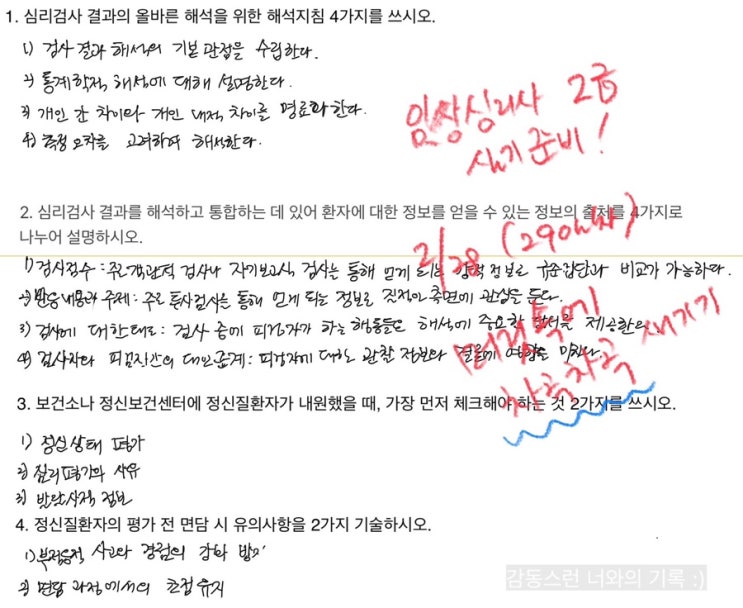 1. 심리검사 결과의 올바른 해석을 위한 해석지침 4가지를 쓰시오.
1) 검사 결과 해석의 기본 관점을 수립한다.
2) 통계학적 해석에 대해 설명한다.
3) 개인 간 차이와 개인 내적 차이를 명료화한다.
4) 측정 오차를 고려하며 해석한다.
임상심리사 2급
실기 준비!
2. 심리검사 결과를 해석하고 통합하는 데 있어 환자에 대한 정보를 얻을 수 있는 정보의 출처를 4가지로
나누어 설명하시오.
2/28 (290일차)
1) 검사점수 : 주로 객관적 검사나 자기보고식 검사를 통해 얻게 되는 양적 정보로 규준집단과 비교가 가능하다.
2) 반응내용과 주제 : 주로 투사검사를 통해 얻게 되는 정보로 질적인 측면에 관심을 둔다.
3) 검사에 대한 태도 : 검사 중에 피검자가 하는 행동들은 해석에 중요한 단서를 제공한다.
4) 검사자와 피검진간의 대인관계 : 피검자에 대한 관찰 정보와 결론에 영향을 미친다.
머릿속에
차곡차곡 새기기
3. 보건소나 정신보건센터에 정신질환자가 내원했을 때, 가장 먼저 체크해야 하는 것 2가지를 쓰시오.
1) 정신상태 평가
2) 심리평가의 사유
3) 발달사적 정보
4. 정신질환자의 평가 전 면담 시 유의사항을 2가지 기술하시오.
1) 부적응적 사고와 경험의 강화 방지
2) 면담 과정에서의 초점 유지
감동스런 너와의 기록 :)